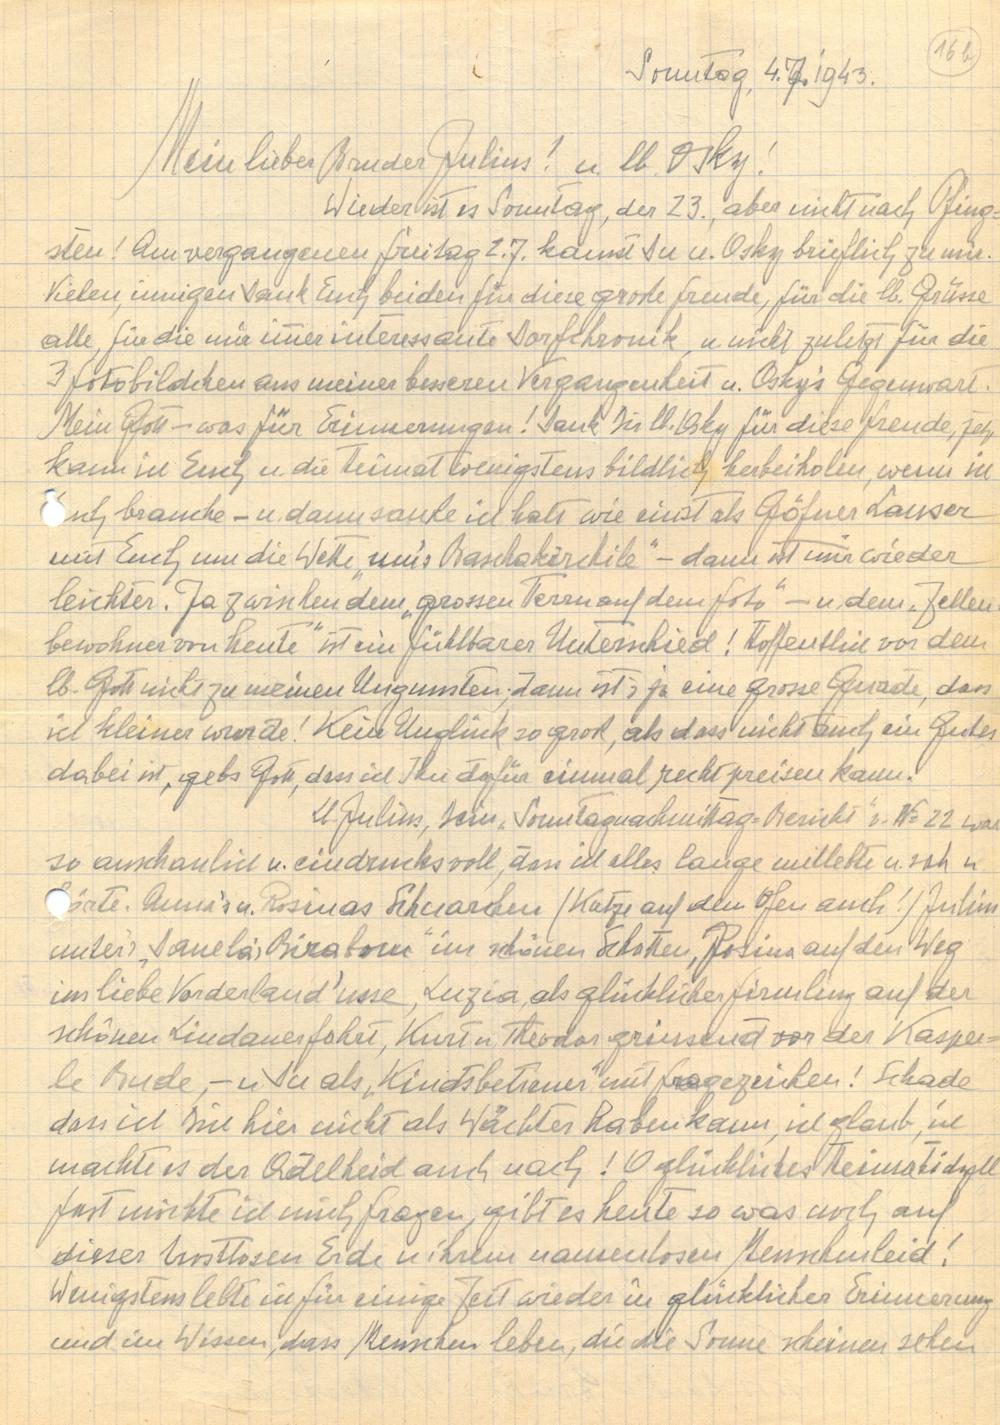 16b
Sonntag, 4.7.1943.
Mein lieber Bruder Julius! u. lb. Osky!
Wieder ist es Sonntag, der 23., aber nicht nach Pfing-
sten! Am vergangenen Freitag 2.7. kamst Du u. Osky brieflich zu mir.
Vielen, innigen Dank Euch beiden für diese große Freude, für die lb. Grüsse
alle, für die mir imer interessante Dorfchronik, u. nicht zuletzt für die
3 Fotobildchen aus meiner besseren Vergangenheit u. Osky's Gegenwart.
Mein Gott – was für Erinnerungen! Dank Dir lb. Osky für diese Freude, jetz
kann ich Euch u. die Heimat wenigstens bildlich herbeiholen, wenn ich
Euch brauche – u. dann sause ich halt wie einst als Göfner Lauser
mit Euch um die Wette „um's  – dann ist mir wieder
leichter. Ja zwischen dem „grossen Herrn auf dem Foto" – u. dem „Zellen-
bewohner von heute" ist ein fühlbarer Unterschied! Hoffentlich vor dem
lb. Gott nicht zu meinen Ungunsten, dann ist's ja eine grosse Gnade, dass
ich kleiner wurde! Kein Unglück so groß, als dass nicht auch ein Gutes
dabei ist, gebs Gott, dass ich Ihn dafür einmal recht preisen kann.
Lb. Julius, Dein „Sonntagnachmittag-Bericht" v. No 22 war
so anschaulich u. eindrucksvoll, dass ich alles lange mitlebte u. sah u
hörte. Anna's u. Rosinas Schnarchen (Katze auf dem Ofen auch!) Julius
unter's „Danela's Birabom" im schönen Schatten, Rosina auf den Weg
ins liebe Vorderland 'usse, Luzia, als glücklicher Firmling auf der
schönen Lindauerfahrt, Kurt u. Theodor grinsend vor der Kasper-
le Bude, – u. Du als „Kindsbetreuer" mit Fragezeichen! Schade
dass ich Dich hier nicht als Wächter haben kann, ich glaub, ich
machte es der Adelheid auch nach! O glückliches Heimatidyll
fast möchte ich mich fragen, gibt es heute so was noch auf
dieser trostlosen Erde u. ihrem namenlosen Menschenleid!
Wenigstens lebte ich für einige Zeit wieder in glücklicher Erinnerung
und im Wissen, dass Menschen leben, die die Sonne scheinen sehen